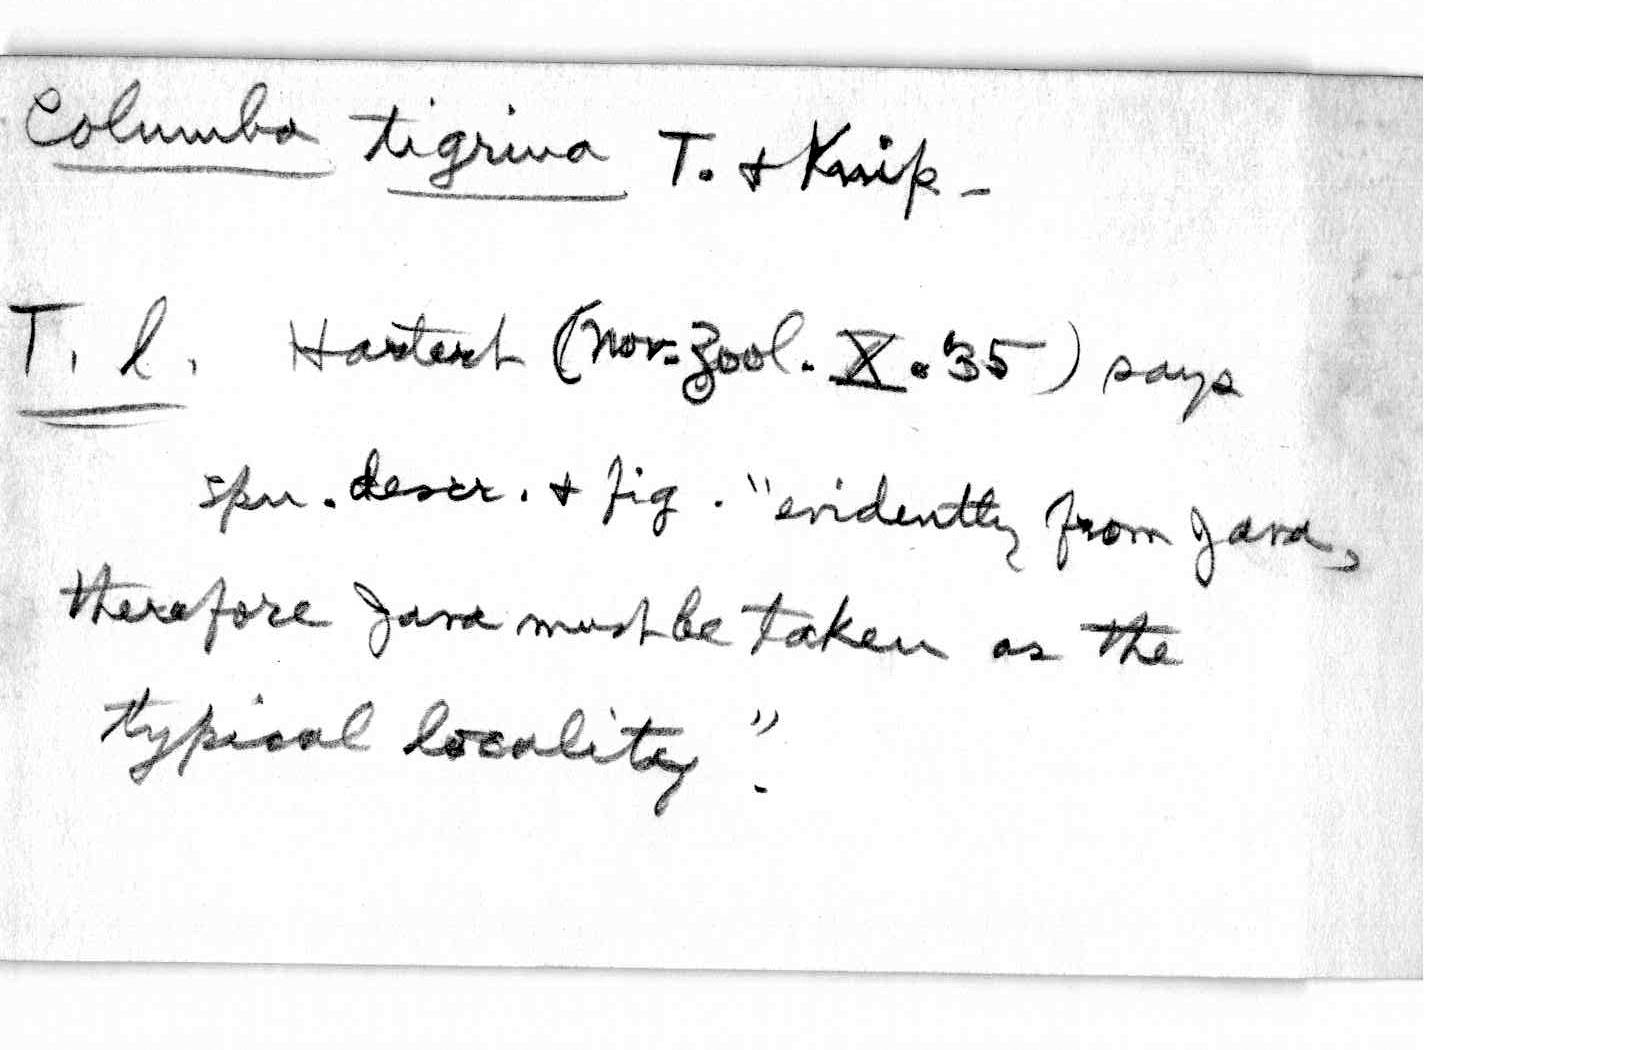 Columba tigrina T. + Knip -
T. l. Hartert (Nov. Zool. X. 35) says
spn. descr. + fig. "evidently from Java,
therefore Java must be taken as the
typical locality".